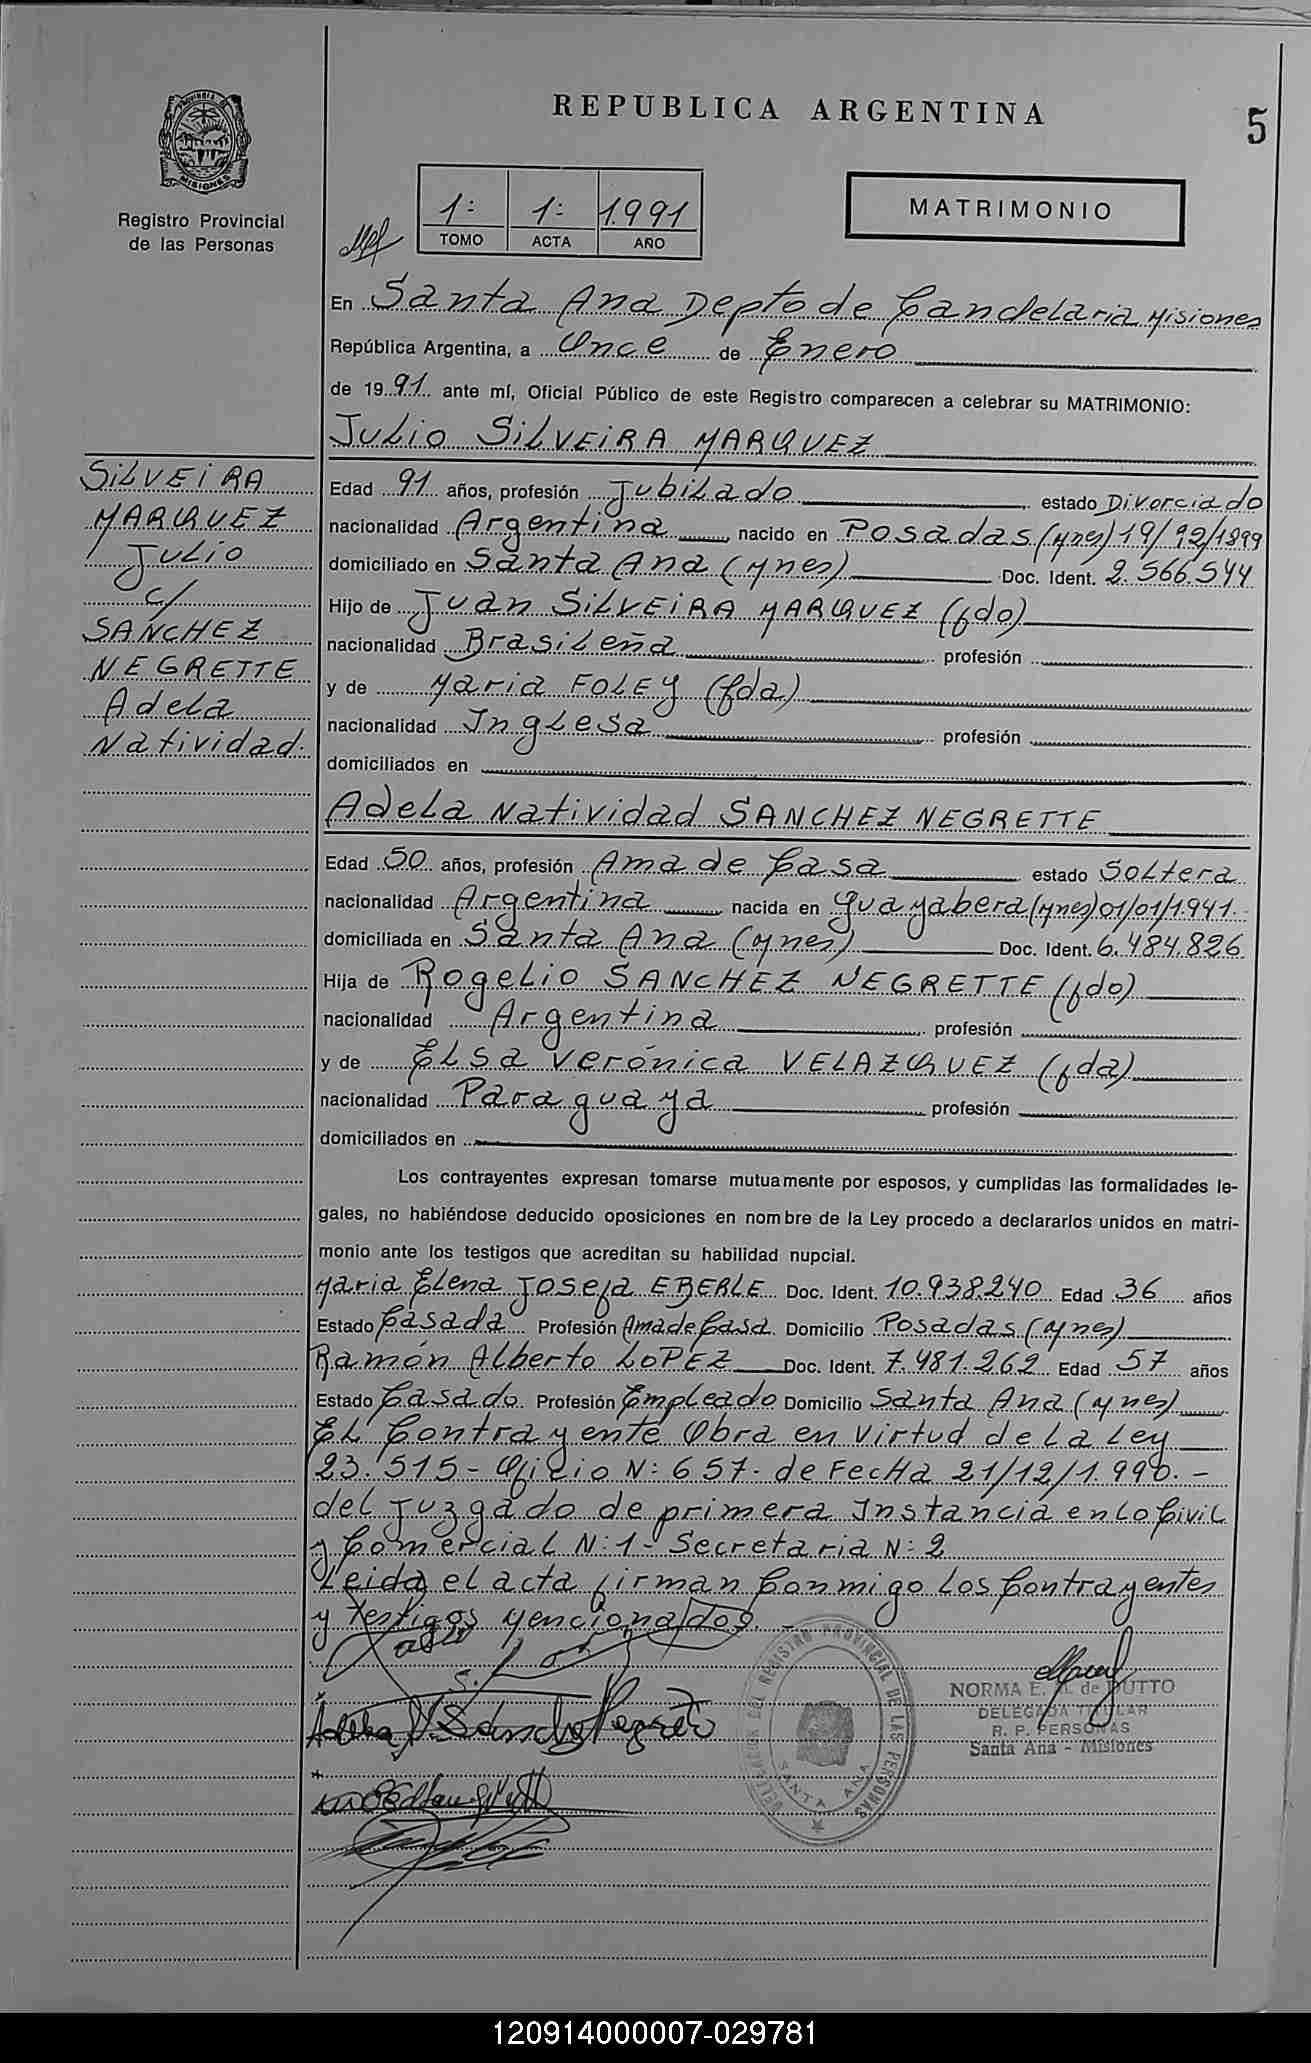 REPUBLICA ARGENTINA
5
PROVINCIA DE
MISIONES
Registro Provincial
de las Personas
1: 1: 1.991
TOMO ACTA AÑO
MATRIMONIO
En Santa Ana Depto de Candelaria Misiones
República Argentina, a Once de Enero
de 19 91 ante mí, Oficial Público de este Registro comparecen a celebrar su MATRIMONIO:
Julio SILVEIRA MARQUEZ
SILVEIRA
MARQUEZ
Julio
c/
SANCHEZ
NEGRETTE
Adela
Natividad.
Edad 91 años, profesión Jubilado estado Divorciado
nacionalidad Argentina nacido en Posadas (Mnes) 19/12/1899
domiciliado en Santa Ana (Mnes) Doc. Ident. 2.566.544
Hijo de Juan SILVEIRA MARQUEZ (fdo)
nacionalidad Brasileña profesión
y de Maria FOLEY (fda)
nacionalidad Inglesa profesión
domiciliados en
Adela Natividad SANCHEZ NEGRETTE
Edad 50 años, profesión Ama de Casa estado Soltera
nacionalidad Argentina nacida en Guayabera (Mnes) 01/01/1.941.
domiciliada en Santa Ana (Mnes) Doc. Ident. 6.484.826
Hija de Rogelio SANCHEZ NEGRETTE (fdo)
nacionalidad Argentina profesión
y de Elsa Verónica VELAZQUEZ (fda)
nacionalidad Paraguaya profesión
domiciliados en
Los contrayentes expresan tomarse mutuamente por esposos, y cumplidas las formalidades le-
gales, no habiéndose deducido oposiciones en nombre de la Ley procedo a declararlos unidos en matri-
monio ante los testigos que acreditan su habilidad nupcial.
Maria Elena Josefa EBERLE Doc. Ident. 10.938.240 Edad 36 años
Estado Casada Profesión Ama de Casa Domicilio Posadas (Mnes)
Ramón Alberto LOPEZ Doc. Ident. 7.481.262 Edad 57 años
Estado Casado Profesión Empleado Domicilio Santa Ana (Mnes)
El Contrayente Obra en virtud de la Ley
23.515 - Oficio N: 657. de Fecha 21/12/1.990. -
del Juzgado de primera Instancia en lo Civil
y Comercial N: 1 - Secretaria N: 2
Leida el acta firman Conmigo los Contrayentes
y testigos Mencionados.
Adela N. Sanchez Negrette
DELEGACION DEL REGISTRO PROVINCIAL DE LAS PERSONAS
SANTA ANA
NORMA E. M. de DUTTO
DELEGADA TITULAR
R. P. PERSONAS
Santa Ana - Misiones
120914000007-029781